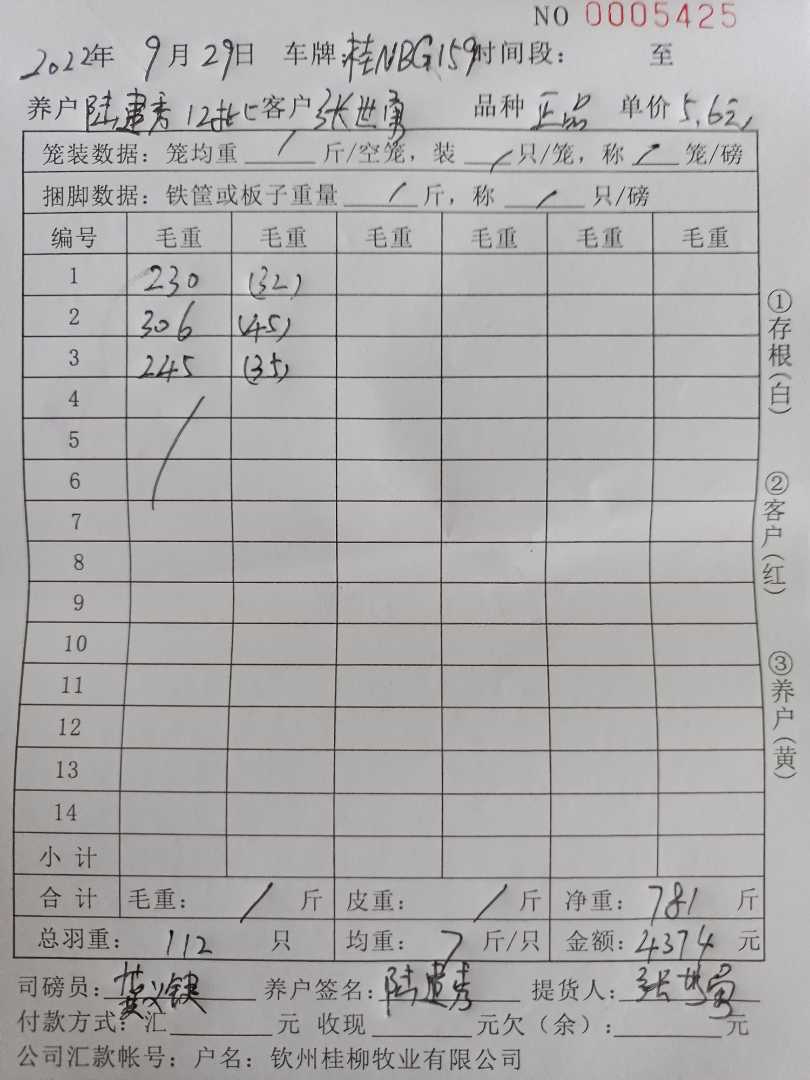 NO 0005425
2022年 9月29日 车牌:桂NBG159时间段: 至
养户 陆建秀 12批 客户 张世勇 品种 正品 单价 5.6元
笼装数据: 笼均重 / 斤/空笼, 装 / 只/笼, 称 / 笼/磅
捆脚数据: 铁筐或板子重量 / 斤, 称 / 只/磅
编号 毛重 毛重 毛重 毛重 毛重 毛重
1 230 (32)
2 306 (45)
3 245 (35)
4
5
6
7
8
9
10
11
12
13
14
小计
合计 毛重: / 斤 皮重: / 斤 净重: 781 斤
总羽重: 112 只 均重: 7 斤/只 金额: 4374 元
司磅员: 养户签名: 陆建秀 提货人: 张世勇
付款方式: 汇 元 收现 元欠(余): 元
公司汇款帐号: 户名: 钦州桂柳牧业有限公司
①存根(白)
②客户(红)
③养户(黄)